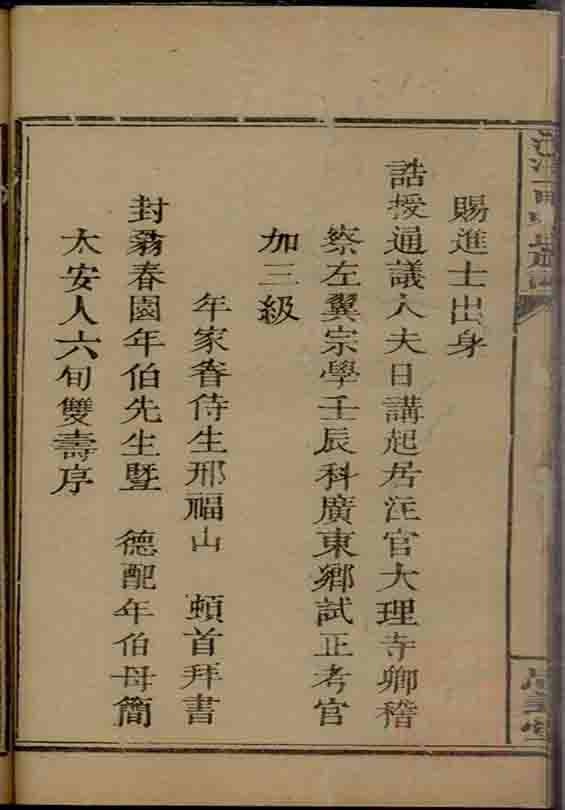 賜進士出身
誥授通議大夫日講起居注官大理寺卿稽
察左翼宗學壬辰科廣東鄉試正考官
加三級
年家眷侍生邢福山　頓首拜書
封翁春園年伯先生暨　德配年伯母簡
太安人六旬雙壽序